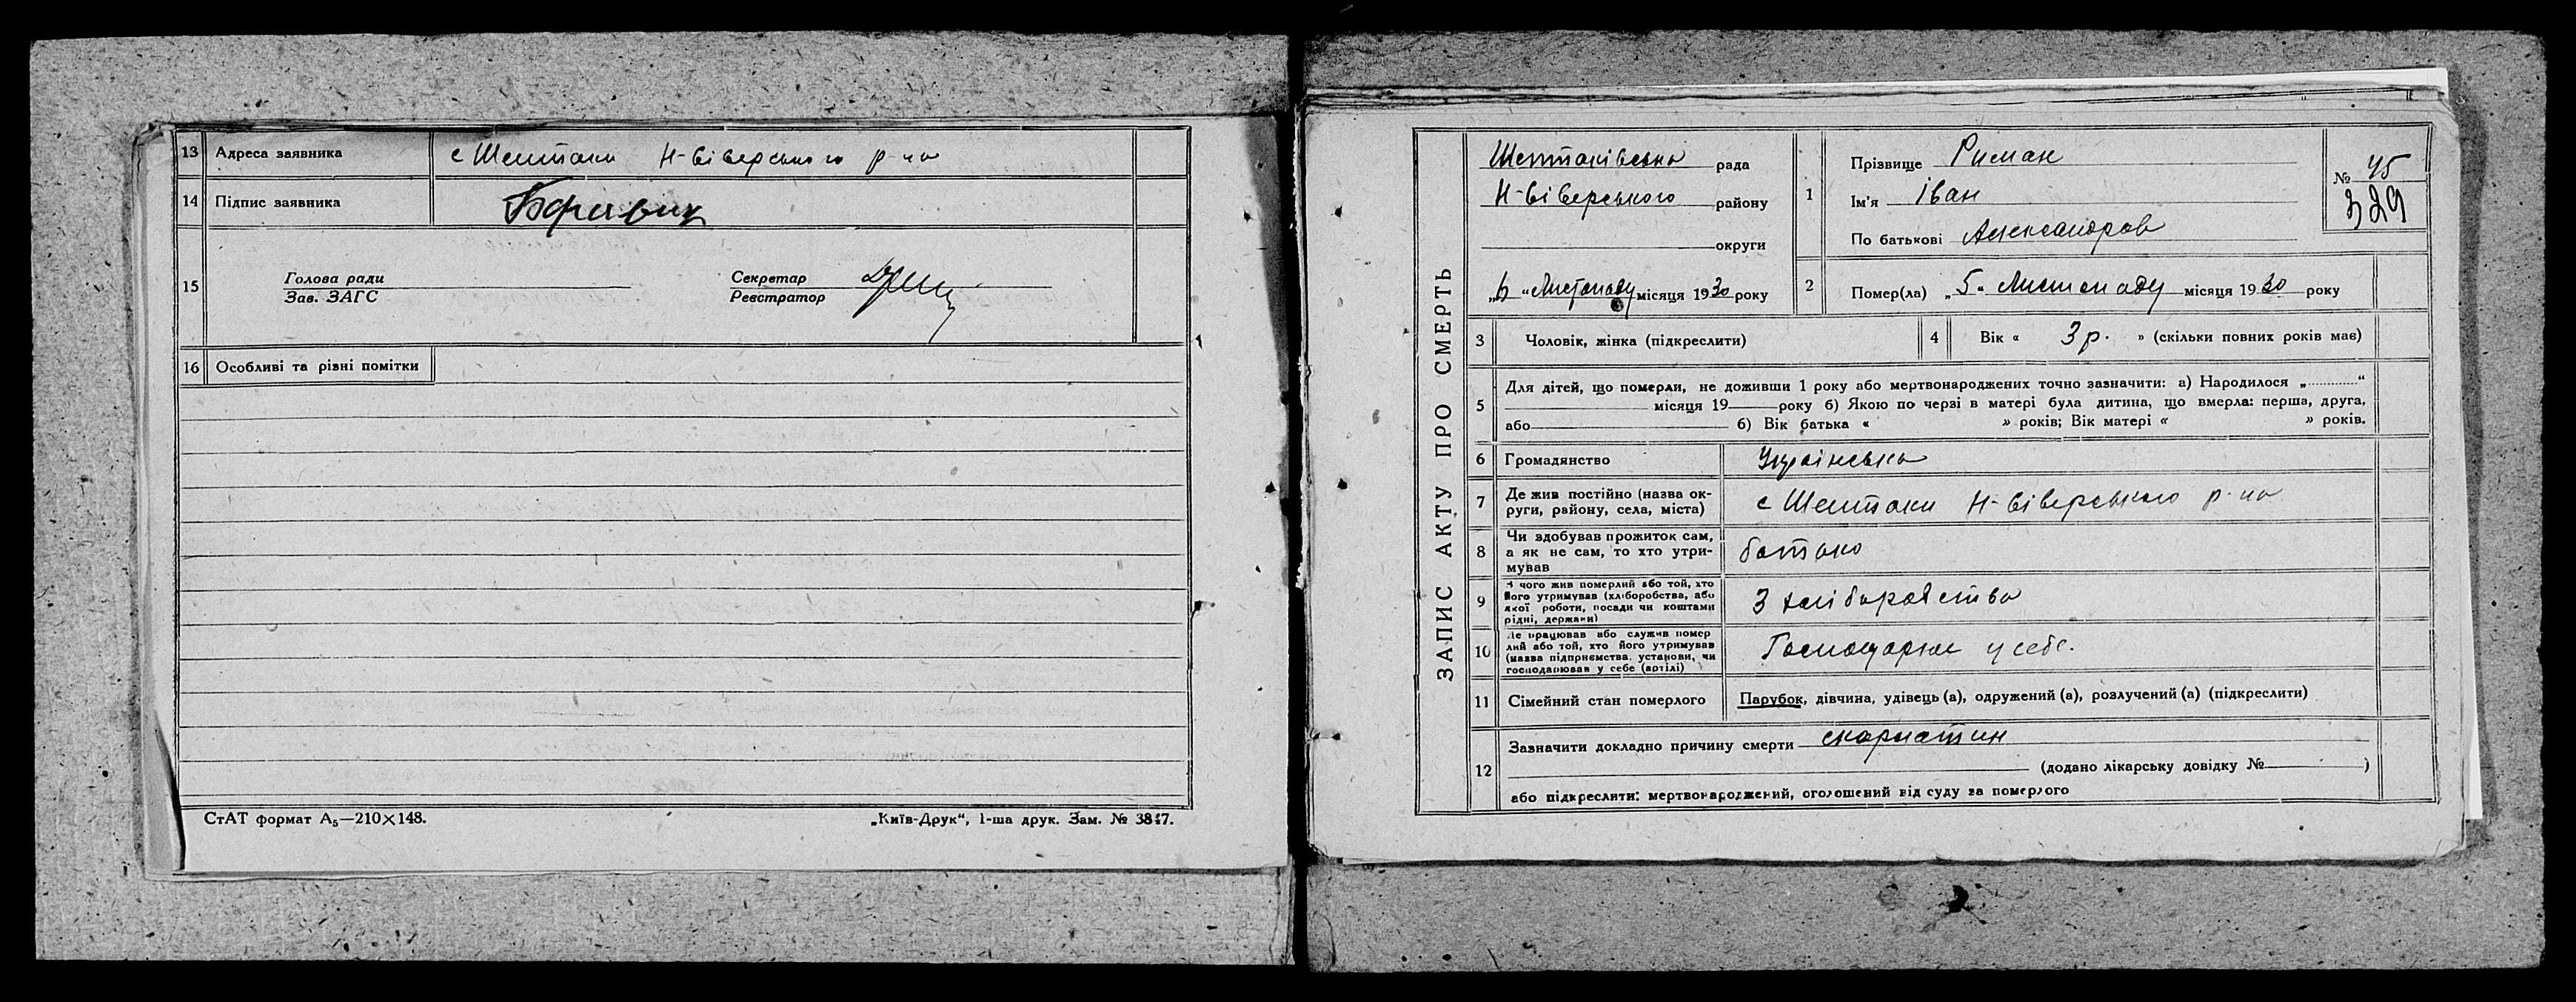 13 Адреса заявника с Шептаки Н-Сіверського р-на
14 Підпис заявника
15 Голова ради
Зав. ЗАГС
Секретар
Реєстратор
16 Особливі та різні помітки
СтАТ формат А5—210×148. „Київ-Друк“, 1-ша друк. Зам. №
ЗАПИС АКТУ ПРО СМЕРТЬ
Шептаківська рада
Н-Сіверського району
округи
„6 “ Листопаду місяця 1930 року
1 Прізвище Риман
Ім'я Іван
По батькові Александров
№ 45
329
2 Помер(ла) „ 5 “ Листопаду місяця 1930 року
3 Чоловік, жінка (підкреслити)
4 Вік « 3 р. » (скільки повних років має)
5 Для дітей, що померли, не доживши 1 року або мертвонароджених точно зазначити: а) Народилося „ “
місяця 19 року б) Якою по черзі в матері була дитина, що вмерла: перша, друга,
або б) Вік батька « » років; Вік матері « » років.
6 Громадянство Українська
7 Де жив постійно (назва ок-
руги, району, села, міста) с Шептаки Н-Сіверського р-на
8 Чи здобував прожиток сам,
а як не сам, то хто утри-
мував батько
9 З чого жив померлий або той, хто
його утримував (хліборобства, або
якої роботи, посади чи коштами
рідні, держави) З хліборобства
10 Де працював або служив помер
лий або той, хто його утримував
(назва підприємства, установи, чи
господарював у себе (артілі) Господарює у себе.
11 Сімейний стан померлого Парубок, дівчина, удівець (а), одружений (а), розлучений (а) (підкреслити)
12 Зазначити докладно причину смерти скарлатин
(додано лікарську довідку № )
або підкреслити: мертвонароджений, оголошений від суду за померлого